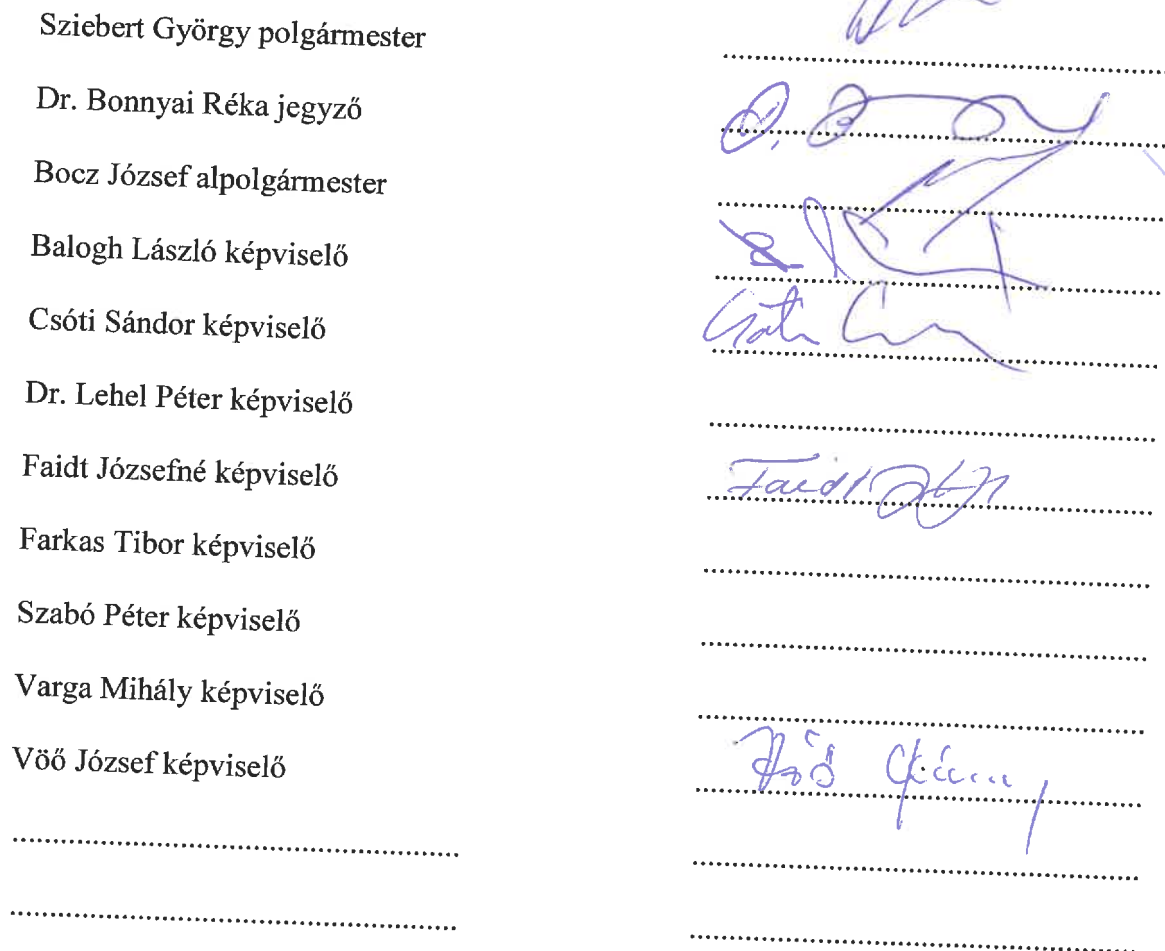 Sziebert György polgármester
Dr. Bonnyai Réka jegyző
Bocz József alpolgármester
Balogh László képviselő
Csóti Sándor képviselő
Dr. Lehel Péter képviselő
Faidt Józsefné képviselő
Faidt
Farkas Tibor képviselő
Szabó Péter képviselő
Varga Mihály képviselő
Vöő József képviselő